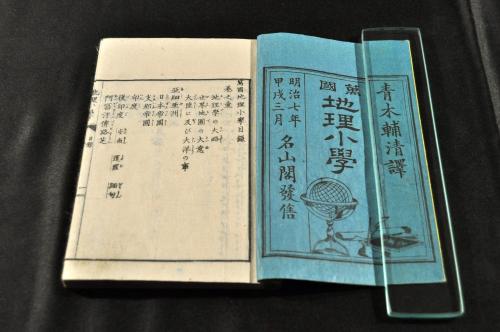 青木輔清譯
萬國
地理小學
明治七年
甲戌三月
名山閣發售
萬國地理小學目録
卷之壹
地理學の大意
世界地圖の大意
大陸に及び大洋の事
亞細亞洲
日本帝國
支那帝國
印度
後印度 安南 暹羅 緬甸